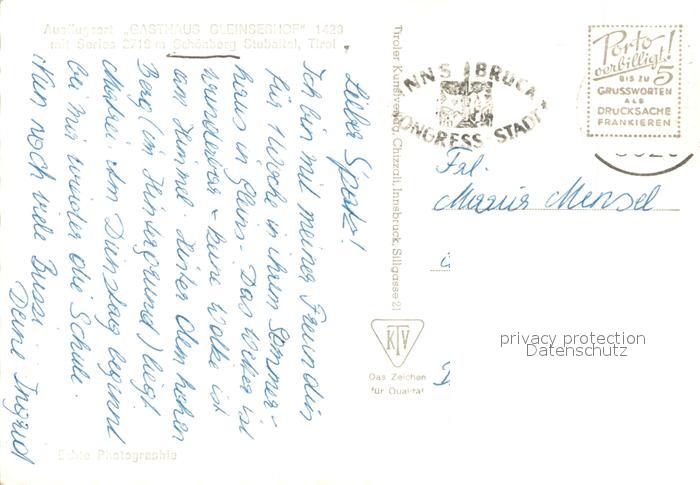 Ausflugsort „GASTHAUS GLEINSERHOF" 1420
mit Serles 2719 m Schönberg Stubaital, Tirol
Lieber Spatz!
Ich bin mit meiner Freundin
für 1 Woche in ihrem Sommer-
haus in Gleins. Das Wetter ist
wunderbar - keine Wolke ist
am Himmel. Hinter dem hohen
Berg (im Hintergrund) liegt
Matrei. Am Dienstag beginnt
bei mir wieder die Schule.
Nun noch viele Bussi
Deine Ingrid
Echte Photographie
Tiroler Kunstverlag Chizzali, Innsbruck, Sillgasse 21
KTV
Das Zeichen
für Qualität
INNSBRUCK
KONGRESS STADT
Porto
verbilligt!
BIS ZU 5
GRUSSWORTEN
ALS
DRUCKSACHE
FRANKIEREN
Frl.
Maria Mensel
privacy protection
Datenschutz